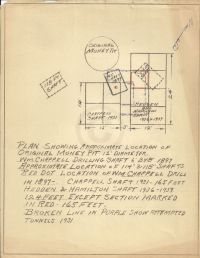 ORIGINAL
MONEY PIT
118 FT
SHAFT
CHAPPELL
SHAFT 1931
HEDDEN
HAMILTON
SHAFT
1936 & 1937
12'
PLAN SHOWING APPROXIMATE LOCATION OF
ORIGINAL MONEY PIT 12' DIAMETER
WM. CHAPPELL DRILLING SHAFT 1897
APPROXIMATE LOCATION OF 114' & 118' SHAFTS
RED DOT LOCATION OF WM. CHAPPELL DRILL
IN 1897-. CHAPPELL SHAFT 1931-165 FOOT
HEDDEN & HAMILTON SHAFT 1936-1937
124 FEET EXCEPT SECTION MARKED
IN RED-165 FEET.
BROKEN LINE IN PURPLE SHOW ATTEMPTED
TUNNELS 1931.